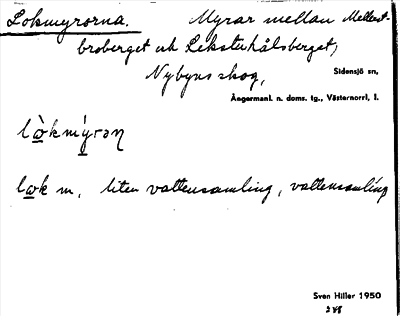 Lokmyrorna. Myrar mellan Mellert-
broberget och Lekstuhålsberget,
Nybyns skog, Sidensjö sn,
Ångermanl. n. doms. tg., Västernorrl. l.
lòkmýrɔn
lok m, liten vattensamling, vattensamling
Sven Hiller 1950
248